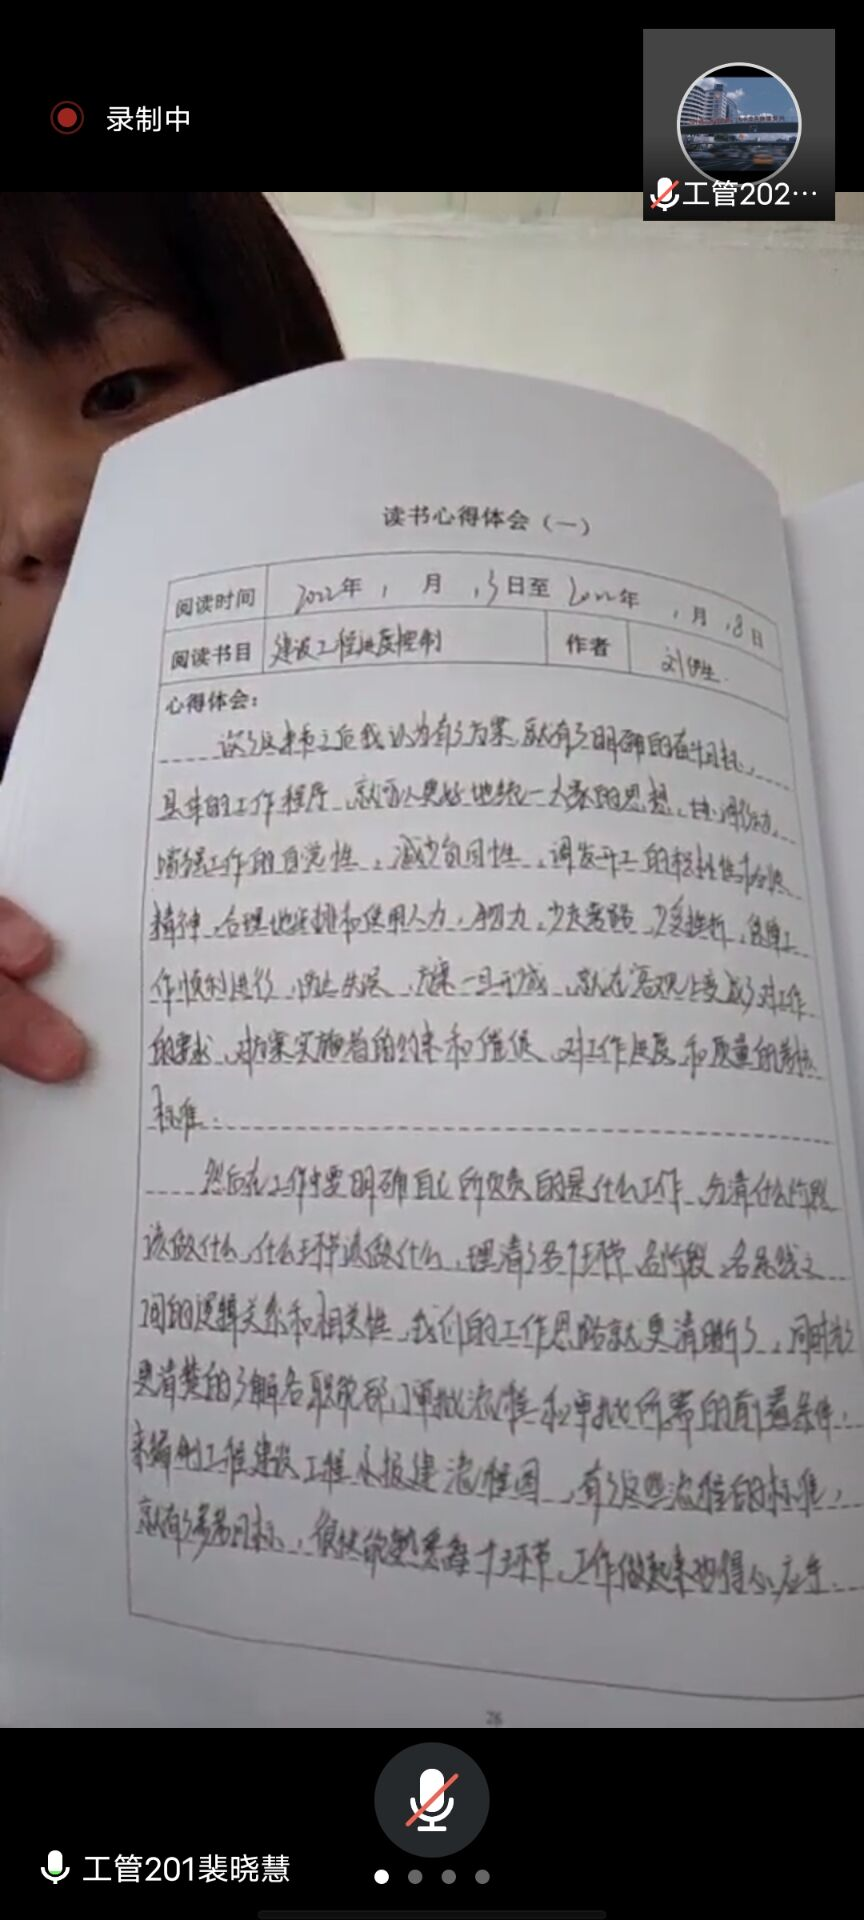 录制中
工管202…
读书心得体会（一）
阅读时间 2022年 1 月 13日至 2022年 1月 18日
阅读书目 建设工程进度控制 作者 刘伊生
心得体会：
读了这本书之后我认为有了方案，就有了明确的奋斗目标，
具体的工作程序，就可以更好地统一大家的思想，协调行动，
增强工作的自觉性，减少盲目性，调发开工的积极性和创造
精神，合理地安排和使用人力，物力，少走弯路，少受挫折，保障工
作顺利进行，防止失误，方案一旦形成，就在客观上变成了对工作
的要求，对方案实施者的约束和催促，对工作进度和质量的考核
标准。
然后在工作中要明确自己所负责的是什么工作，分清什么阶段
该做什么，什么环节该做什么，理清了各个环节，各阶段，各条线之
间的逻辑关系和相关性，我们的工作思路就更清晰了，同时
更清楚的了解各职能部门审批流程和审批所需的前置条件，
来编制工程建设工程 报建流程图，有了这些流程的标准，
就有了参考目标，很快能熟悉每个环节，工作做起来也得心应手。
26
工管201裴晓慧